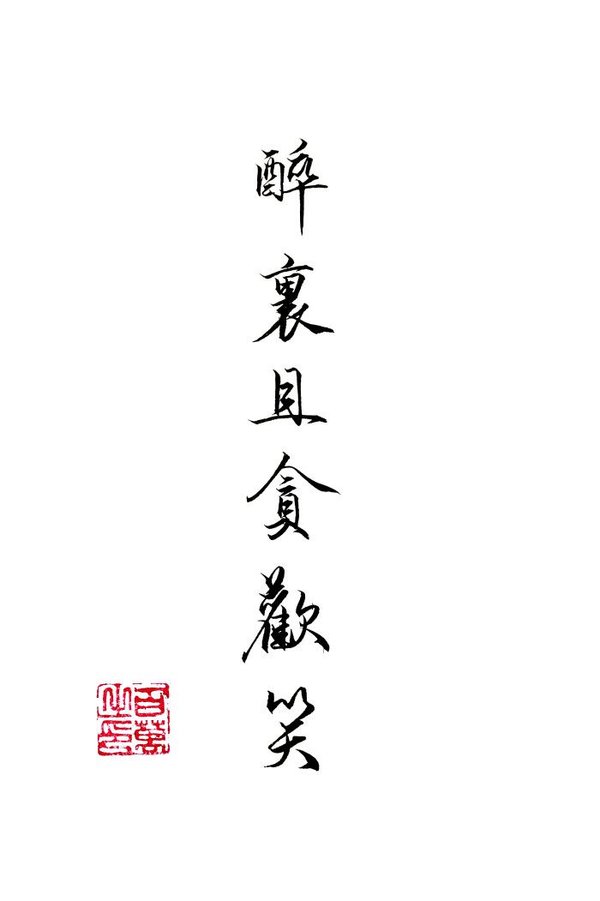 醉裏且貪歡笑